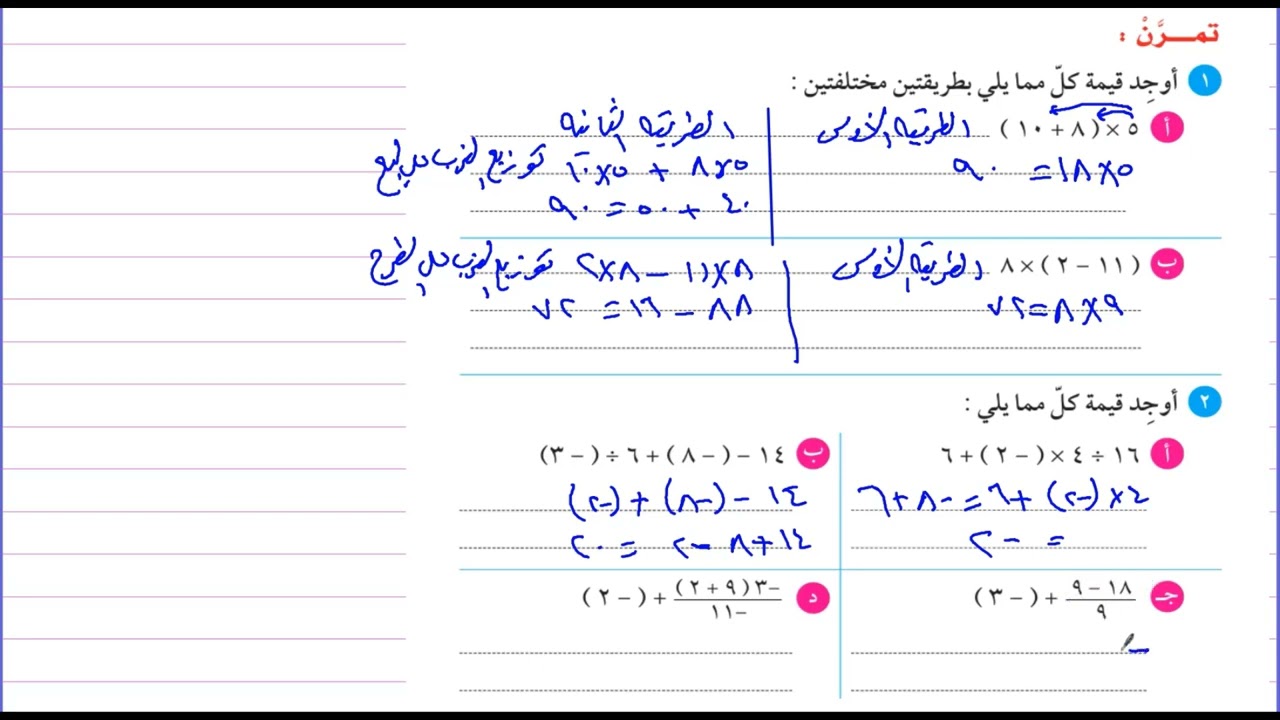 تمـــرَّنْ :
١ أوجِد قيمة كلّ مما يلي بطريقتين مختلفتين :
أ ٥ × ( ٨ + ١٠ ) الطريقة الأولى
٥ × ١٨ = ٩٠
الطريقة الثانية
٥ × ٨ + ٥ × ١٠ توزيع الضرب على الجمع
٤٠ + ٥٠ = ٩٠
ب ( ١١ – ٢ ) × ٨ الطريقة الأولى
٩ × ٨ = ٧٢
٨ × ١١ – ٨ × ٢ توزيع الضرب على الطرح
٨٨ – ١٦ = ٧٢
٢ أوجِد قيمة كلّ مما يلي :
أ ١٦ ÷ ٤ × ( – ٢ ) + ٦
٤ × (–٢) + ٦ = –٨ + ٦
= –٢
ب ١٤ – ( – ٨ ) + ٦ ÷ ( – ٣ )
١٤ – (–٨) + (–٢)
١٤ + ٨ – ٢ = ٢٠
جـ ١٨ – ٩ / ٩ + ( – ٣ )
–
د –٣ ( ٩ + ٢ ) / –١١ + ( – ٢ )